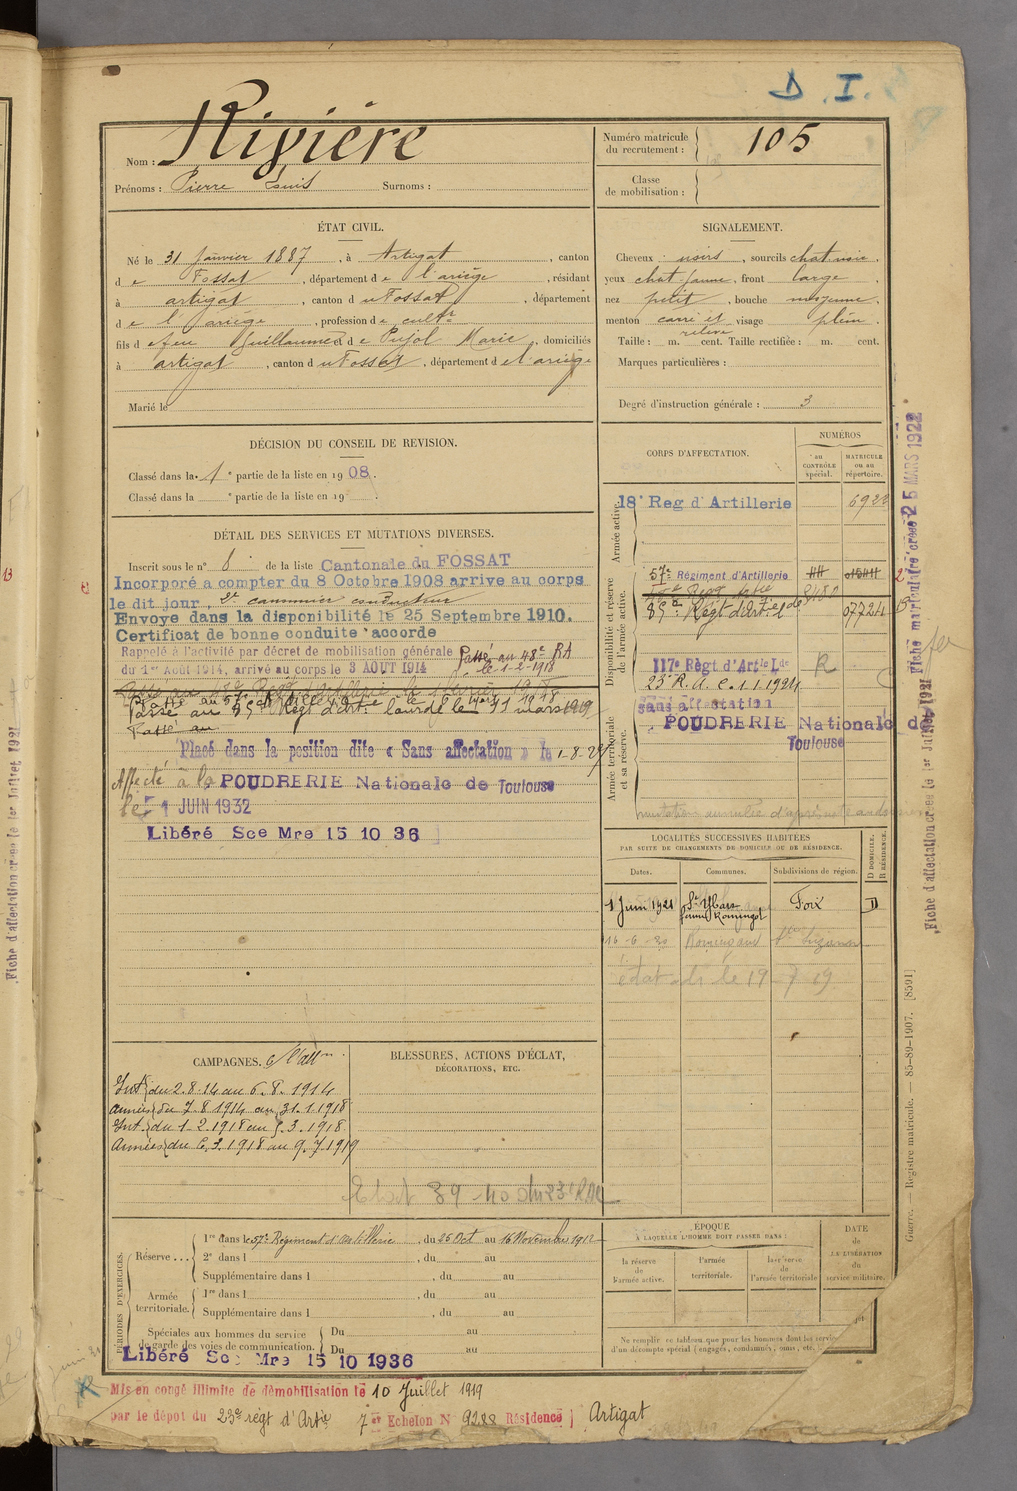 D. I.
Nom : Rivière
Prénoms : Pierre Louis Surnoms :
Numéro matricule du recrutement : 105
Classe de mobilisation :
ÉTAT CIVIL.
Né le 31 Janvier 1887, à Artigat, canton
de Fossat, département de l'ariège, résidant
à artigat, canton du Fossat, département
de l'ariège, profession de cultr
fils de feu Guillaume et de Pujol Marie, domiciliés
à artigat, canton du Fossat, département de l'ariège
Marié le
SIGNALEMENT.
Cheveux : noirs, sourcils chat noir,
yeux chat-jaune, front large
nez petit, bouche moyenne,
menton carré et relevé visage plein.
Taille : m. cent. Taille rectifiée : m. cent.
Marques particulières :
Degré d'instruction générale : 3
DÉCISION DU CONSEIL DE REVISION.
Classé dans la 1e partie de la liste en 1908.
Classé dans la e partie de la liste en 19 .
DÉTAIL DES SERVICES ET MUTATIONS DIVERSES.
Inscrit sous le n° 8 de la liste Cantonale du FOSSAT
Incorporé a compter du 8 Octobre 1908 arrive au corps
le dit jour, 2e cannonier conducteur
Envoye dans la disponibilité le 25 Septembre 1910.
Certificat de bonne conduite accorde
Rappelé à l'activité par décret de mobilisation générale Passé au 48e RA
du 1er Août 1914, arrivé au corps le 3 AOUT 1914 le 1-2-1918
Passé au 85e Régt d'art. lourde le 11 mars 1919
Passé au
Placé dans la position dite « Sans affectation » le 1-8-29
Affecté à la POUDRERIE Nationale de Toulouse
le 1 JUIN 1932
Libéré Sce Mre 15 10 36
CORPS D'AFFECTATION.
NUMÉROS
au CONTRÔLE spécial.
MATRICULE ou au répertoire.
Armée active.
18e Reg d'Artillerie
Disponibilité et réserve de l'armée active.
57e Régiment d'Artillerie
85e Régt d'art. Lde 07724
117e Règt d'Artie Lde R
23e R.A.C. 1.1.1924
sans affectation
Armée territoriale et sa réserve.
POUDRERIE Nationale de
Toulouse
mutation annulée d'après note
LOCALITÉS SUCCESSIVES HABITÉES
PAR SUITE DE CHANGEMENTS DE DOMICILE OU DE RÉSIDENCE.
Dates. Communes. Subdivisions de région. D DOMICILE. R RÉSIDENCE.
1 Juin 1921 Foix D
CAMPAGNES. C l'allm.
Int du 2.8.14 au 6.8.1914
armées du 7.8 1914 au 31.1.1918
Int. du 1 2.1918 au 5.3.1918
Armées du 6.3.1918 au 9.7.1919
BLESSURES, ACTIONS D'ÉCLAT,
DÉCORATIONS, ETC.
PÉRIODES D'EXERCICES.
Réserve ... 1re dans le 57e Régiment d'artillerie, du 25 Oct au 16 Novembre 1912
2e dans l , du au
Supplémentaire dans l , du au
Armée territoriale. 1re dans l , du au
Supplémentaire dans l , du au
Spéciales aux hommes du service Du au
de garde des voies de communication. Du au
Libéré Sce Mre 15 10 1936
ÉPOQUE
À LAQUELLE L'HOMME DOIT PASSER DANS :
la réserve de l'armée active.
l'armée territoriale.
la réserve de l'armée territoriale
DATE de LA LIBÉRATION du service militaire.
Ne remplir ce tableau que pour les hommes dont les
d'un décompte spécial (engagés, condamnés, omis, etc.
Mis en congé illimité de démobilisation le 10 Juillet 1919
par le dépot du 23e régt d'Artie 7er Echelon N 9288 Résidence Artigat
Guerre. — Registre matricule. — 85-89-1907. [8591]
Fiche matriculaire créée 25 MARS 1922
Fiche d'affectation créée le 1er Juillet 1921
Fiche d'affectation créée le 1er Juillet 1921